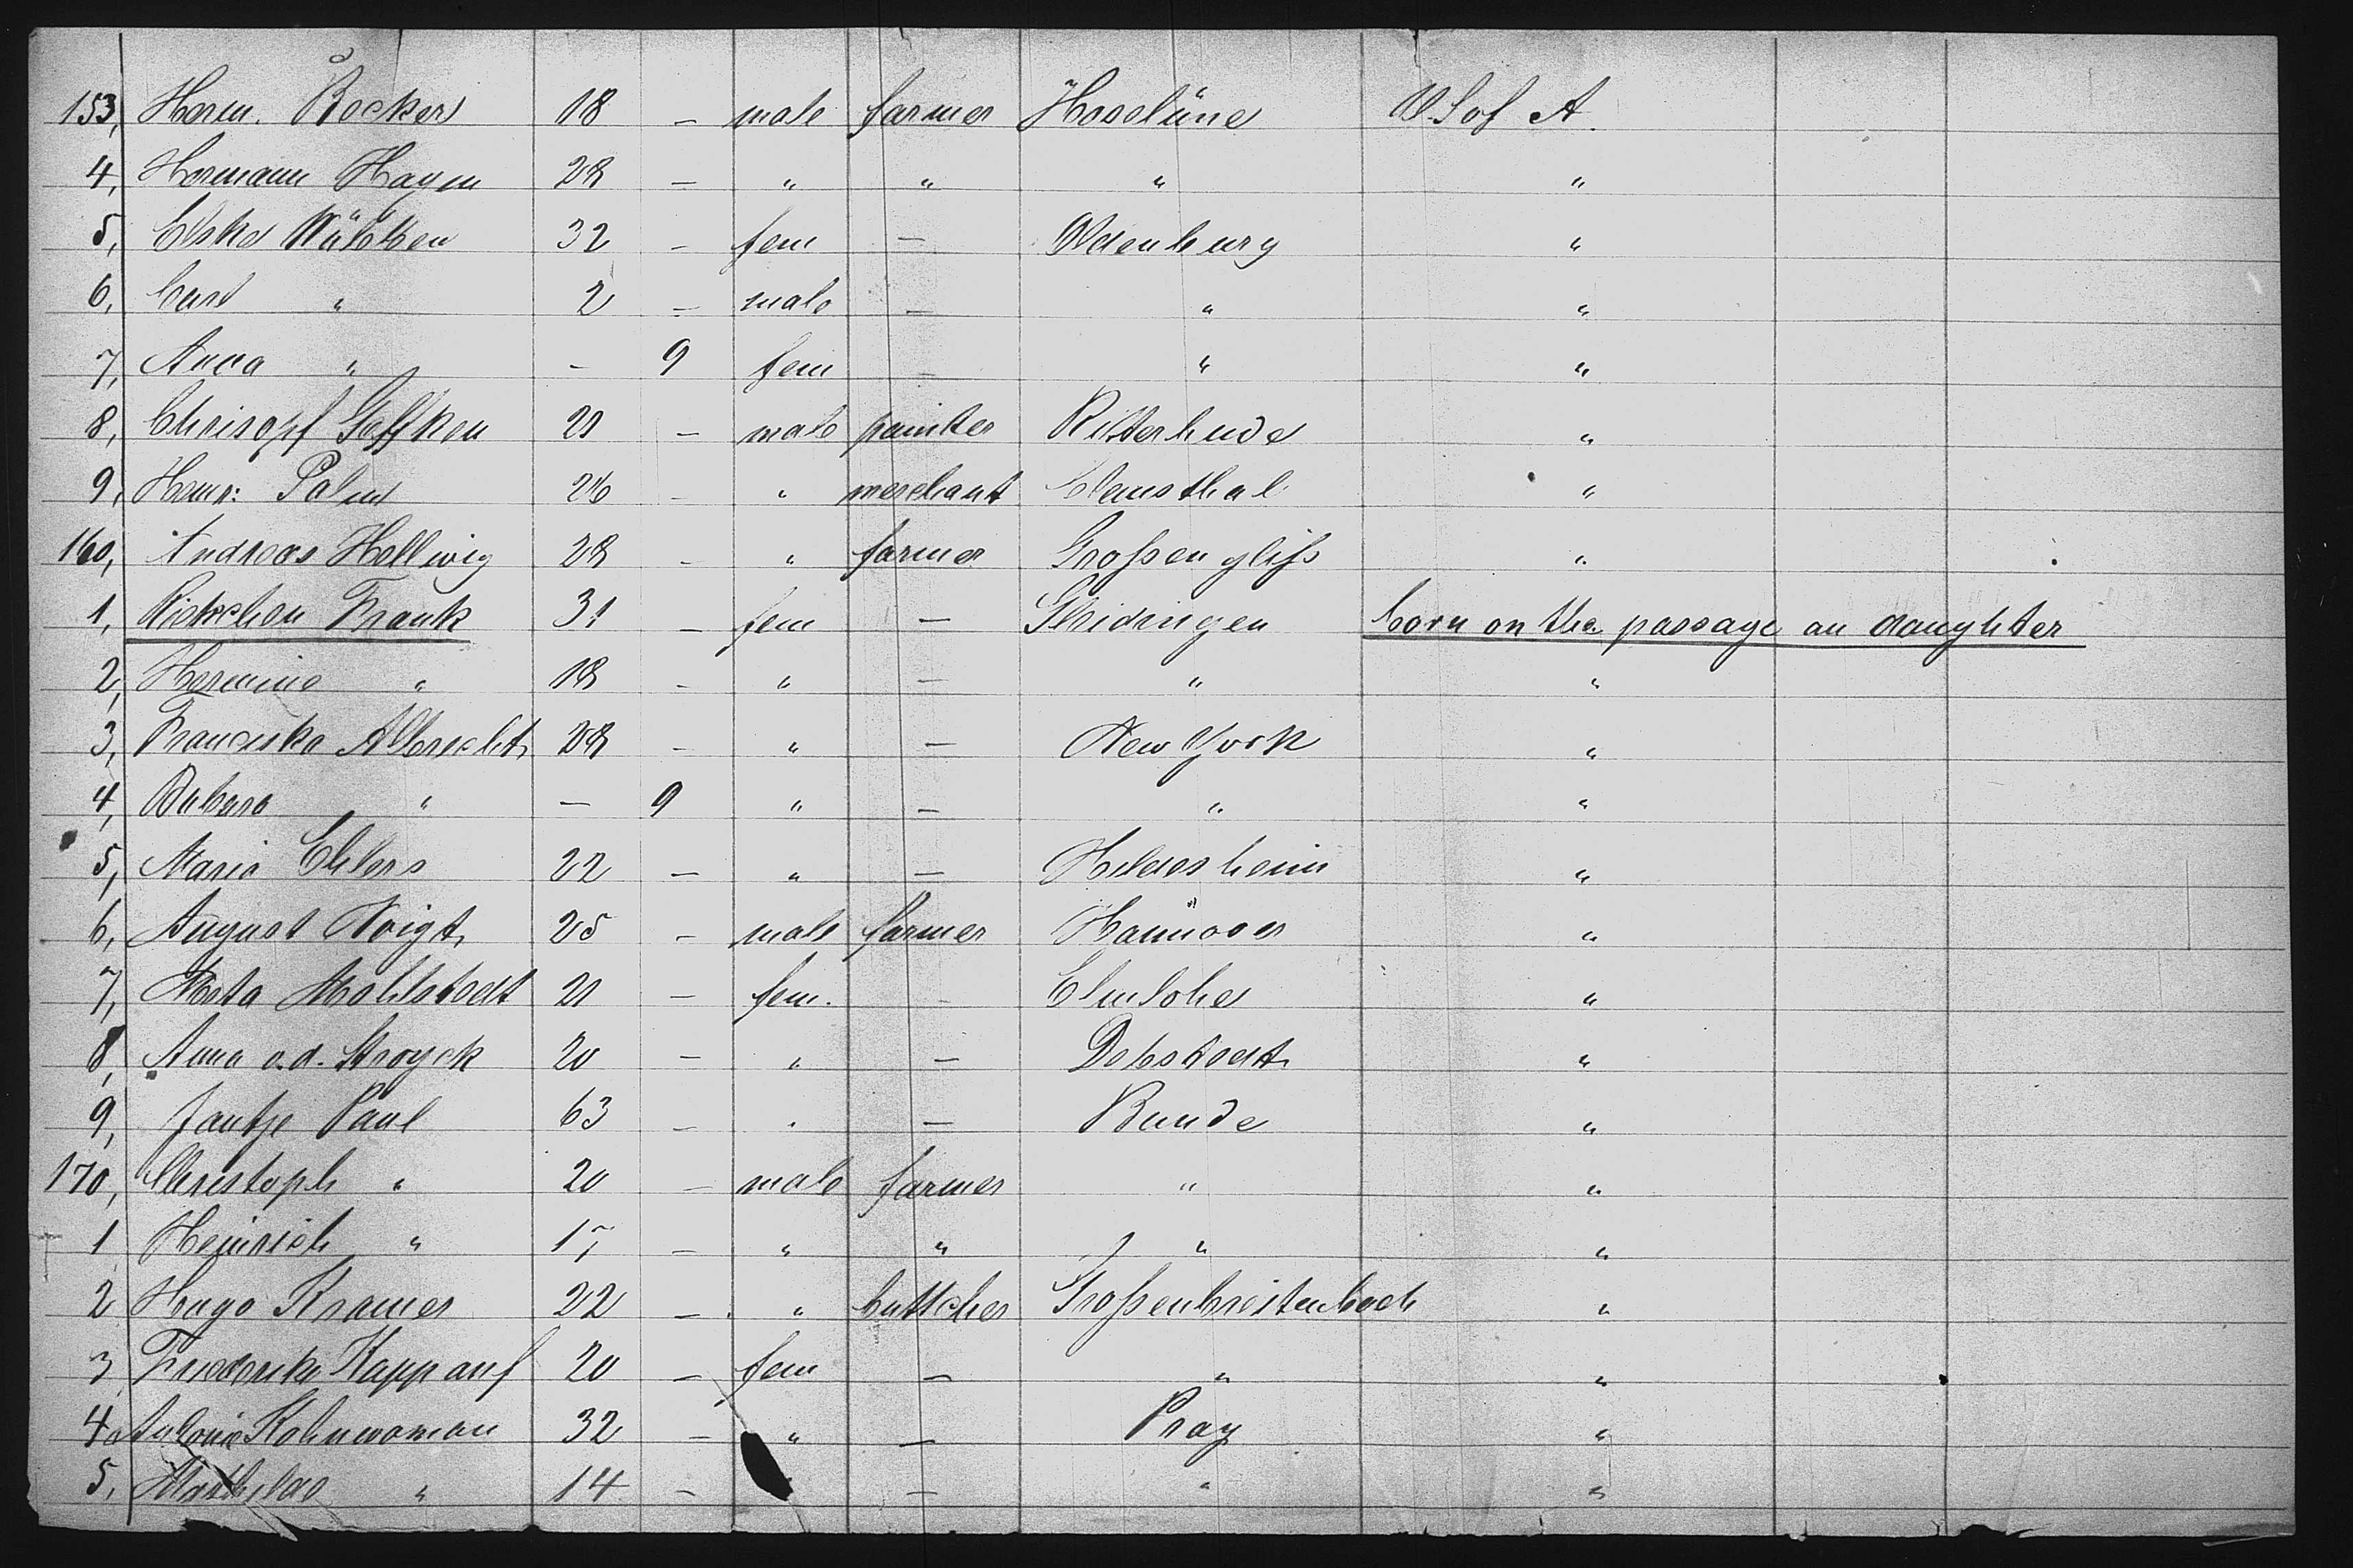 153, Herm. Böcker 18 – male farmer Haselüne U.S of A.
4, Hermann Hagen 28 – " " " "
5, Elske Wübben 32 – fem – Oldenburg "
6, Carl " 2 – male – " "
7, Anna " – 9 fem – " "
8, Chrisopf Geffken 21 – male painter Ritterhude "
9, Henr: Palm 26 – " merchant Clausthal "
160, Andreas Hellwig 28 – " farmer Großenglis "
1, Riekchen Frank 31 – fem – born on the passage an daughter
2, Hermine " 18 – " – " "
3, Franciska Albrecht 28 – " – New York "
4, Babara " – 9 " – " "
5, Marie Ehlers 22 – " – Hildesheim "
6, August Voigt 25 – male farmer Hannover "
7, Meta Mahlstedt 21 – fem. – Elmlohe "
8, Anna v.d. Stroyck 20 – " – Debstedt "
9, Jantje Paul 63 – " – Bunde "
170, Christoph " 20 – male farmer " "
1 Heinrich " 17 – " " " "
2 Hugo Kramer 22 – " buttcher Großenbreitenbach "
3 Friederike Kappauf 20 – fem – " "
4, Antonie 32 – " – Prag "
5, Mathilde " 14 – " – " "